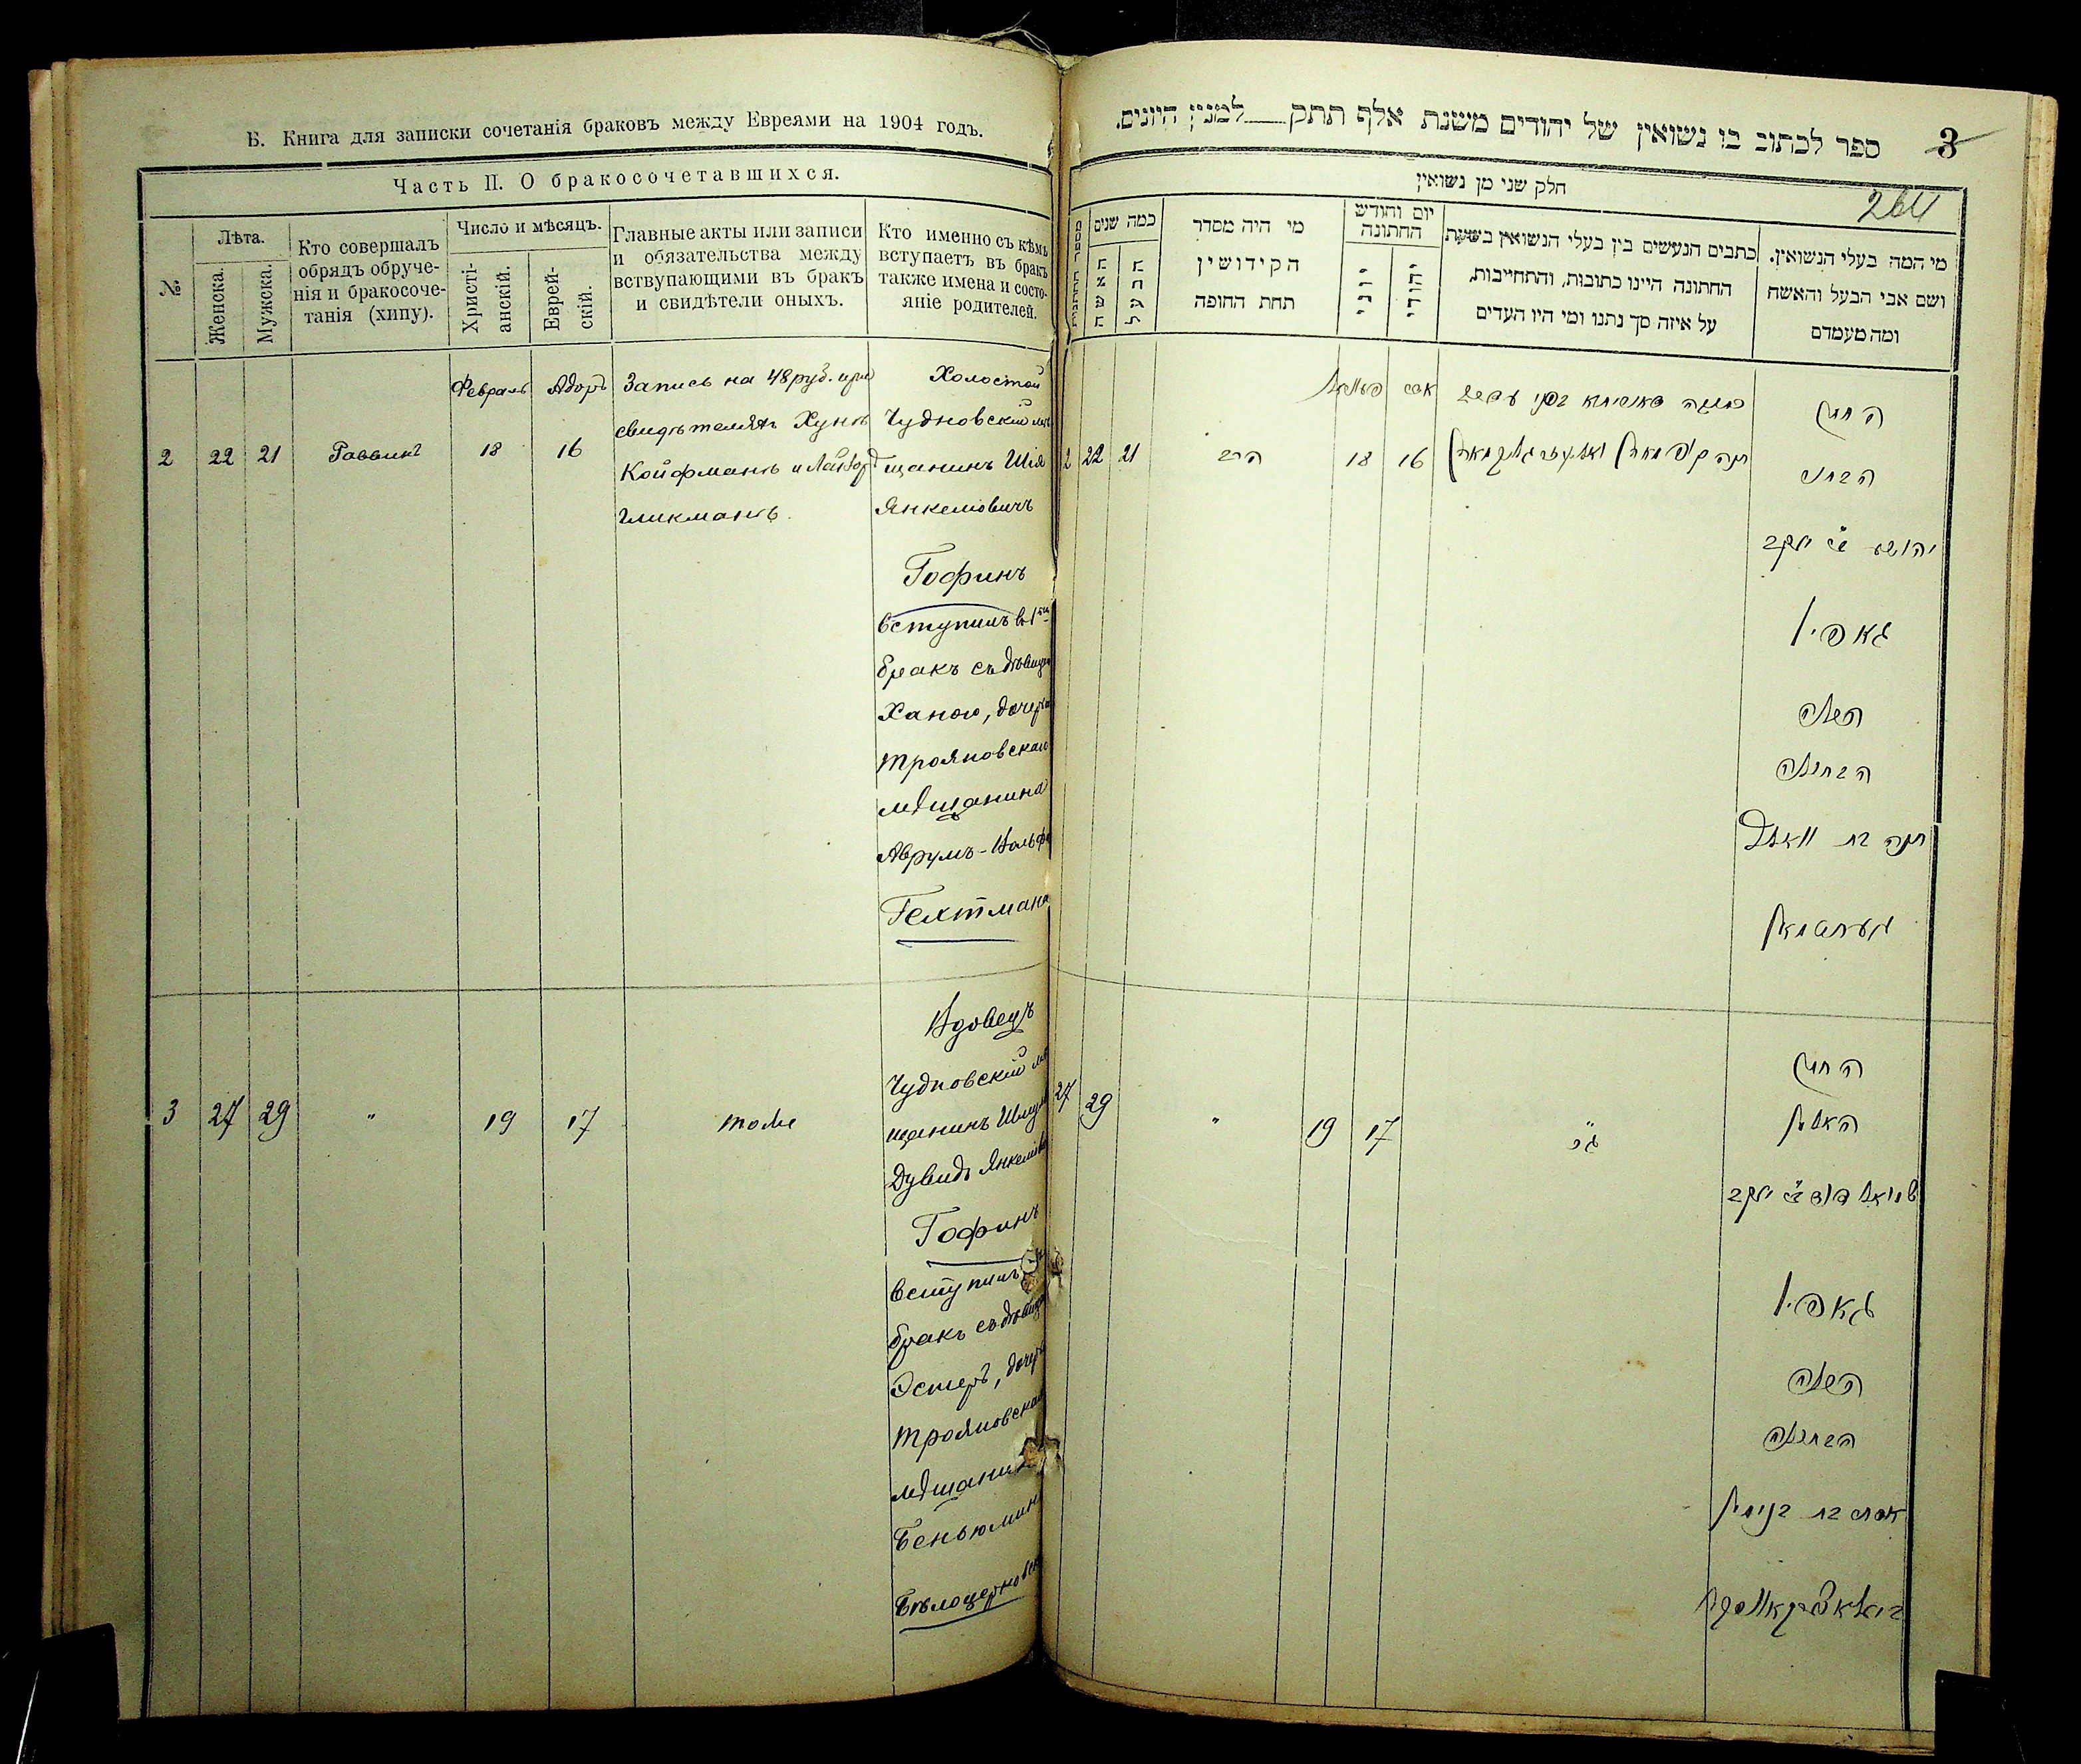 Б. Книга для записки сочетанія браковъ между Евреями на 1904 годъ.
Часть II. О бракосочетавшихся.
№
Лѣта.
Женска.
Мужска.
Кто совершалъ
обрядъ обруче-
нія и бракосоче-
танія (хипу).
Число и мѣсяцъ.
Христі-
анскій.
Еврей-
скій.
Главные акты или записи
и обязательства между
вствупающими въ бракъ
и свидѣтели оныхъ.
Кто именно съ кѣмъ
вступаетъ въ бракъ
также имена и состо-
яніе родителей.
2
22
21
Раввинъ
Февраль
18
Адоръ
16
Запись на 48 руб. при
свидѣтеляхъ Хунъ
Койфманъ и
Гликманъ
Холостой
Чудновскій мѣ
щанинъ Шія
Янкеліовичъ
Гофинъ
вступилъ в 1ый
бракъ съ дѣвицею
Ханою, дочерью
трояновскаго
мѣщанина
Аврумъ-Вольфа
Гехтмана
3
27
29
"
19
17
тоже
Вдовецъ
Чудновскій мѣ
щанинъ Шмуль
Дувидъ Янкеліов
Гофинъ
вступилъ
бракъ съ дѣвицею
Эстеръ, дочерью
трояновскаго
мѣщанина
Беньюмина
Бѣлоцерковск
ספר לכתוב בו נשואין של יהודים משנת אלף תתק___למנין היונים.
3
264
חלק שני מן נשואין
מספר החתונות
כמה שנים
האשה
הבעל
מי היה מסדר
הקידושין
תחת החופה
יום וחודש
החתונה
יוני
יהודי
כתבים הנעשים בין בעלי הנשואין בשעת
החתונה היינו כתובות, והתחייבות,
על איזה סך נתנו ומי היו העדים
מי המה בעלי הנשואין.
ושם אבי הבעל והאשה
ומה מעמדם
2
22
21
הרב
18
16
החתן
הבחור
יהושע ב״ר יעקב
גאפין
הכלה
הבתולה
חנה בת וואלף
געכטמאן
27
29
"
19
17
החתן
האלמן
שמואל דוד ב״ר יעקב
גאפין
הכלה
הבתולה
אסתר בת בנימין